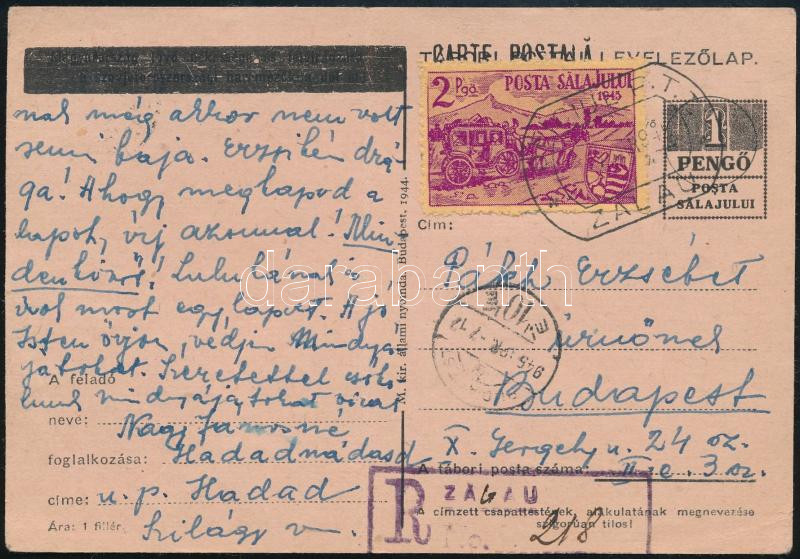 CARTE POSTALĂ
LEVELEZŐLAP.
2 Pgő. POSTA SĂLAJULUI
1945
1
PENGŐ
POSTA
SĂLAJULUI
P.T.T.
ZALĂU
nak még akkor nem volt
semi baja. Erzsikém drá-
ga! Ahogy megkapod a
lapot, írj azonnal! Min-
denkiről! Lulukának is
írok most egy lapot. A jó
Isten őrizzen, védjen Mindnyá-
jatokat. Szeretettel csókol
mindnyájatokat
Nagy Jánosné
Hadadnádasd
u. p. Hadad
Szilágy vm.
A feladó
neve:
foglalkozása:
címe:
Ára: 1 fillér.
M. kir. állami nyomda, Budapest. 1944.
Cím:
Erzsébet
úrnőnek
Budapest
X. Gergely u. 24 sz.
II. e. 3 sz.
A tábori posta száma:
A címzett csapattestének alakulatának megnevezése
szigorúan tilos!
945 APR -7 17
R ZALĂU
No. 218
darabanth